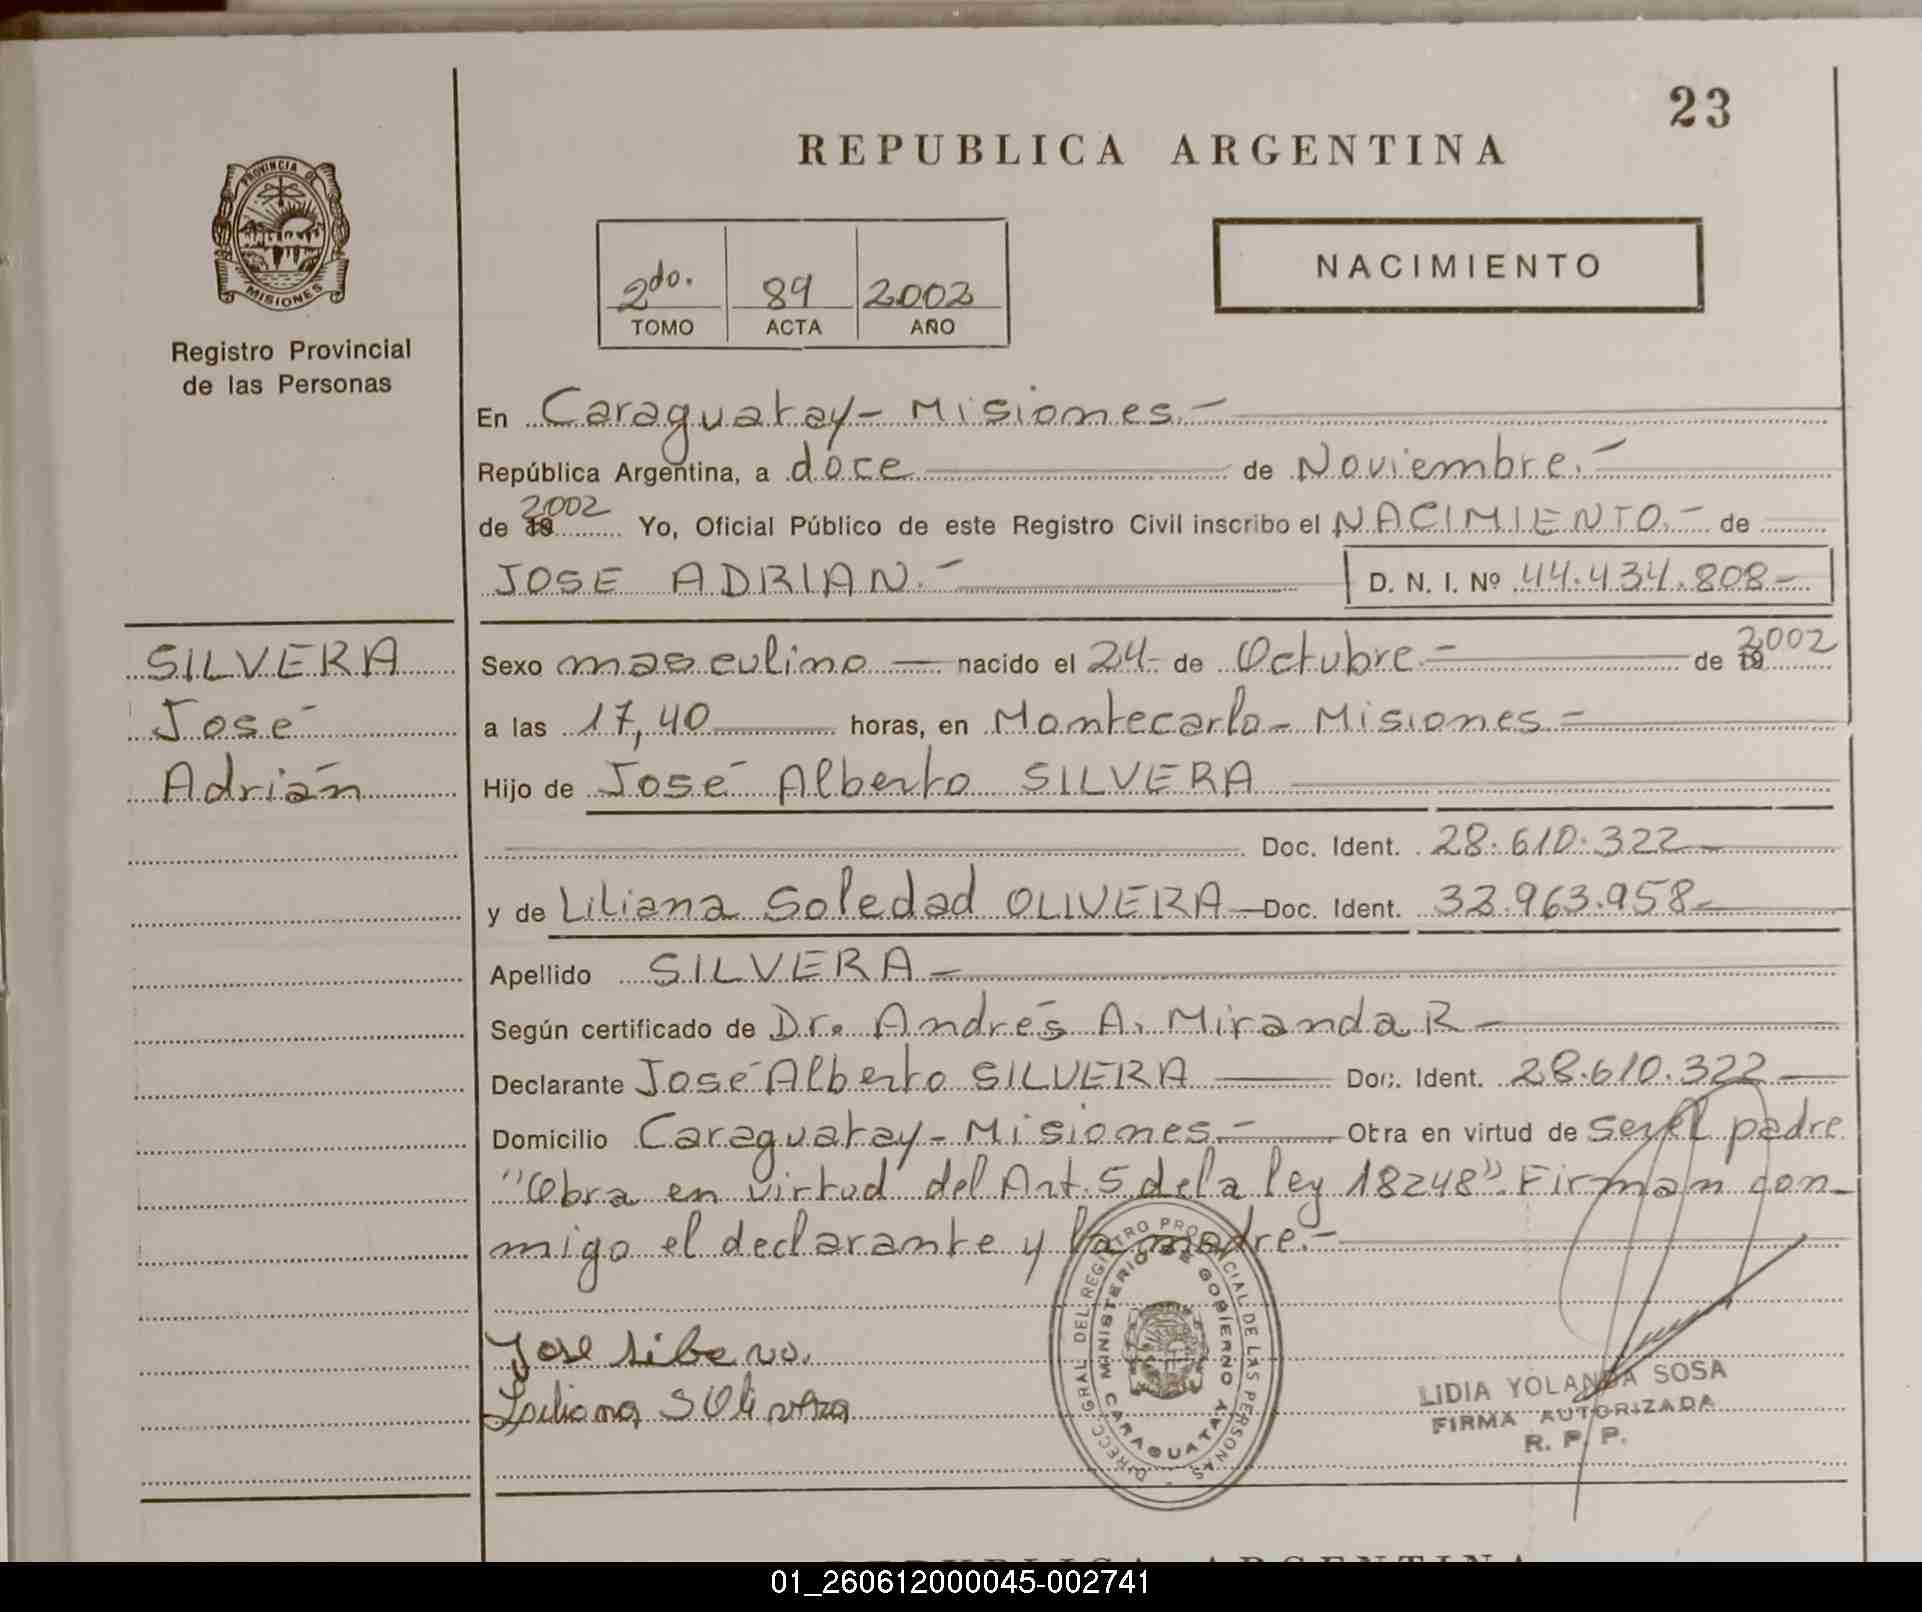 23
REPUBLICA ARGENTINA
PROVINCIA DE
MISIONES
Registro Provincial
de las Personas
2do. 89 2002
TOMO ACTA AÑO
NACIMIENTO
En Caraguatay - Misiones.-
República Argentina, a doce de Noviembre.-
de 19 2002 Yo, Oficial Público de este Registro Civil inscribo el NACIMIENTO.- de
JOSE ADRIAN.- D. N. I. Nº 44.434.808-
SILVERA
José
Adrián
Sexo masculino - nacido el 24- de Octubre.- de 19 2002
a las 17,40 horas, en Montecarlo - Misiones -
Hijo de José Alberto SILVERA
Doc. Ident. 28.610.322-
y de Liliana Soledad OLIVERA - Doc. Ident. 33.963.958-
Apellido SILVERA -
Según certificado de Dr. Andrés A. Miranda R -
Declarante José Alberto SILVERA Doc. Ident. 28.610.322
Domicilio Caraguatay - Misiones.- Obra en virtud de ser el padre
"Obra en virtud del Art. 5 de la ley 18248". Firman con-
migo el declarante y la madre.-
DIRECC. GRAL DEL REGISTRO PROVINCIAL DE LAS PERSONAS
MINISTERIO DE GOBIERNO
CARAGUATAY
Jose
LIDIA YOLANDA SOSA
FIRMA AUTORIZADA
R. P. P.
REPUBLICA ARGENTINA
01_260612000045-002741